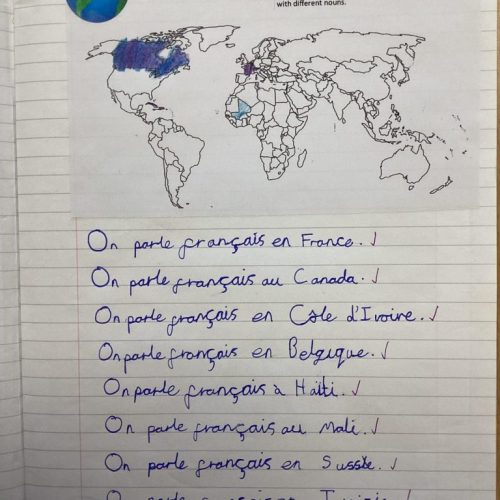 with different nouns.
On parle français en France.
On parle français au Canada.
On parle français en Côte d'Ivoire.
On parle français en Belgique.
On parle français à Haïti.
On parle français au Mali.
On parle français en Sussie.